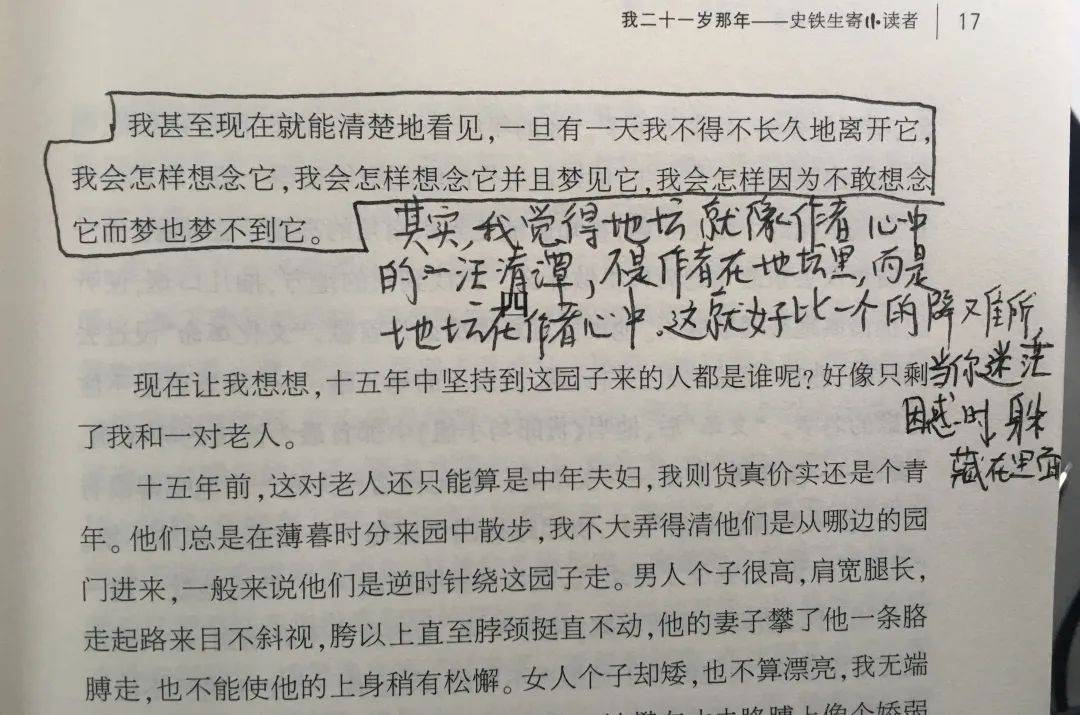 我二十一岁那年——史铁生寄小读者 17
我甚至现在就能清楚地看见，一旦有一天我不得不长久地离开它，
我会怎样想念它，我会怎样想念它并且梦见它，我会怎样因为不敢想念
它而梦也梦不到它。
其实，我觉得地坛就像作者心中
的一汪清潭，不是作者在地坛里，而是
地坛在作者心中。这就好比一个的降难所，
当你迷茫
困惑时
藏在里面
四
现在让我想想，十五年中坚持到这园子来的人都是谁呢？好像只剩
了我和一对老人。
十五年前，这对老人还只能算是中年夫妇，我则货真价实还是个青
年。他们总是在薄暮时分来园中散步，我不大弄得清他们是从哪边的园
门进来，一般来说他们是逆时针绕这园子走。男人个子很高，肩宽腿长，
走起路来目不斜视，胯以上直至脖颈挺直不动，他的妻子攀了他一条胳
膊走，也不能使他的上身稍有松懈。女人个子却矮，也不算漂亮，我无端